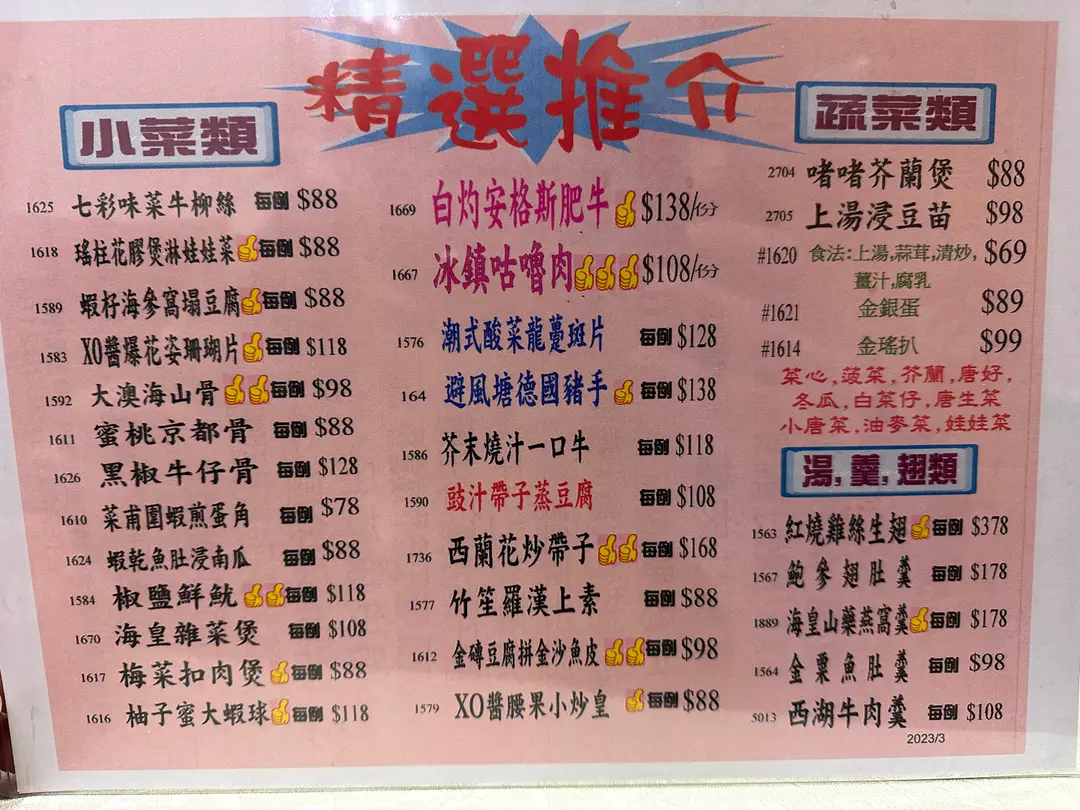 精選推介
小菜類
1625 七彩味菜牛柳絲 每例 $88
1618 瑤柱花膠煲淋娃娃菜 每例 $88
1589 蝦籽海參窩塌豆腐 每例 $88
1583 XO醬爆花姿珊瑚片 每例 $118
1592 大澳海山骨 每例 $98
1611 蜜桃京都骨 每例 $88
1626 黑椒牛仔骨 每例 $128
1610 菜甫圍蝦煎蛋角 每例 $78
1624 蝦乾魚肚浸南瓜 每例 $88
1584 椒鹽鮮魷 每例 $118
1670 海皇雜菜煲 每例 $108
1617 梅菜扣肉煲 每例 $88
1616 柚子蜜大蝦球 每例 $118
1669 白灼安格斯肥牛 $138/份
1667 冰鎮咕嚕肉 $108/份
1576 潮式酸菜龍躉斑片 每例 $128
164 避風塘德國豬手 每例 $138
1586 芥末燒汁一口牛 每例 $118
1590 豉汁帶子蒸豆腐 每例 $108
1736 西蘭花炒帶子 每例 $168
1577 竹笙羅漢上素 每例 $88
1612 金磚豆腐拼金沙魚皮 每例 $98
1579 XO醬腰果小炒皇 每例 $88
蔬菜類
2704 啫啫芥蘭煲 $88
2705 上湯浸豆苗 $98
#1620 食法:上湯,蒜茸,清炒, $69
薑汁,腐乳
#1621 金銀蛋 $89
#1614 金瑤扒 $99
菜心,菠菜,芥蘭,唐好,
冬瓜,白菜仔,唐生菜
小唐菜,油麥菜,娃娃菜
湯,羹,翅類
1563 紅燒雞絲生翅 每例 $378
1567 鮑參翅肚羹 每例 $178
1889 海皇山藥燕窩羹 每例 $178
1564 金粟魚肚羹 每例 $98
5013 西湖牛肉羹 每例 $108
2023/3